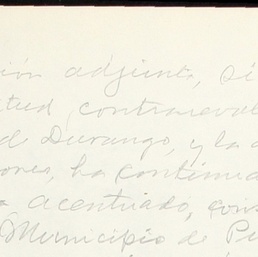 ión adjunta, si
tud contrarevol
d Durango, y la
ones, ha continua
acentuado, cons
Municipio de Pu